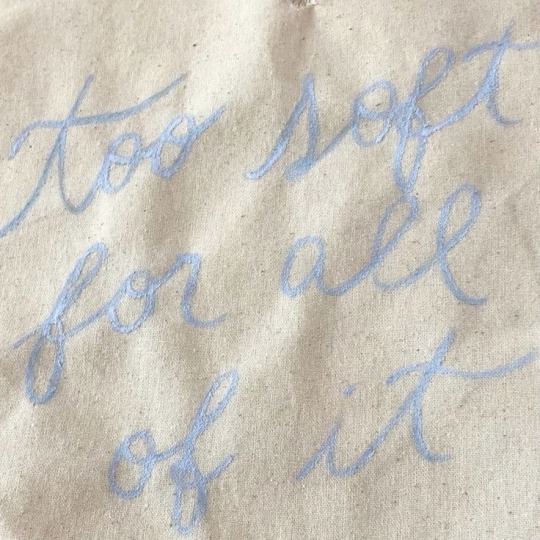 too soft
for all
of it